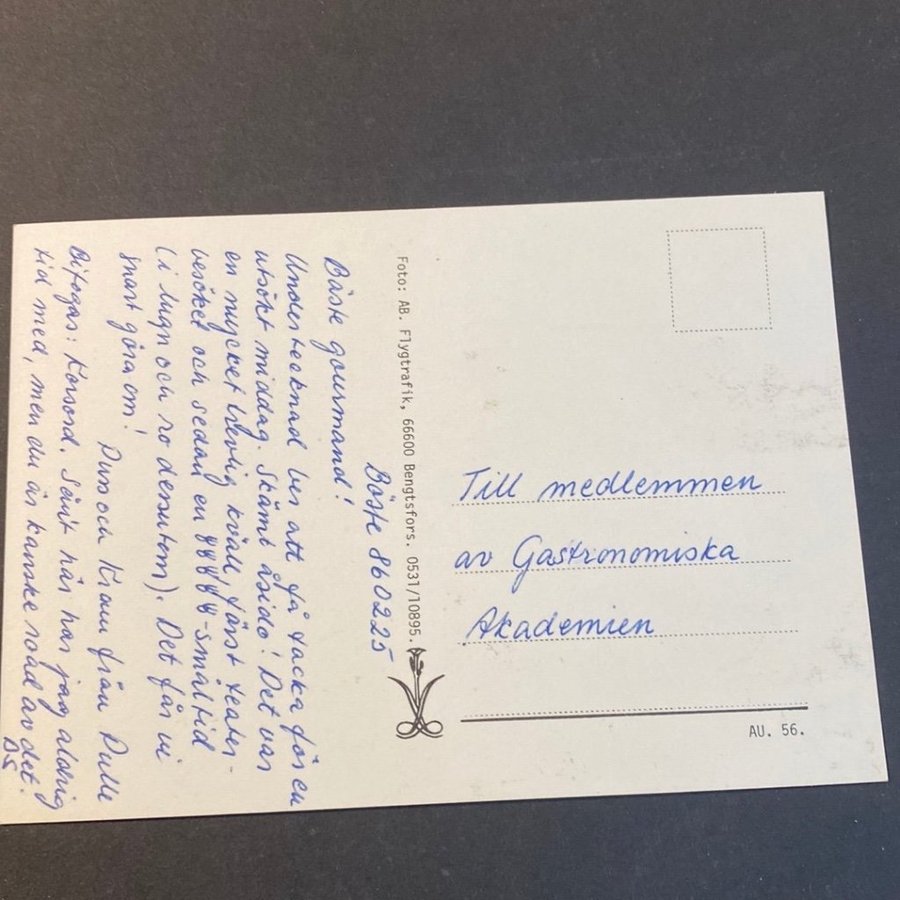 Böste 860225
Bäste gourmand!
Undertecknad ber att få tacka för en
utsökt middag. Skämt åsido! Det var
en mycket trevlig kväll, först teater-
besöket och sedan en YYYYY-småltid
(i lugn och ro dessutom). Det får vi
snart göra om!
Puss och Kram från Pulle
Bifogas: Korsord. Sånt här har jag aldrig
tid med, men du är kanske road av det.
DS
Foto: AB. Flygtrafik, 66600 Bengtsfors. 0531/10895.
Till medlemmen
av Gastronomiska
Akademien
AU. 56.